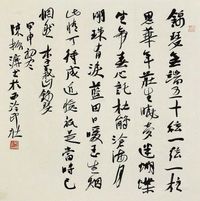 錦瑟無端五十弦一弦一柱
思華年莊生曉夢迷蝴蝶
望帝春心託杜鵑滄海月
明珠有淚藍田日暖玉生煙
此情可待成追憶只是當時已
惘然 李義山錦瑟
甲申初冬
陳振濂書於西泠印社